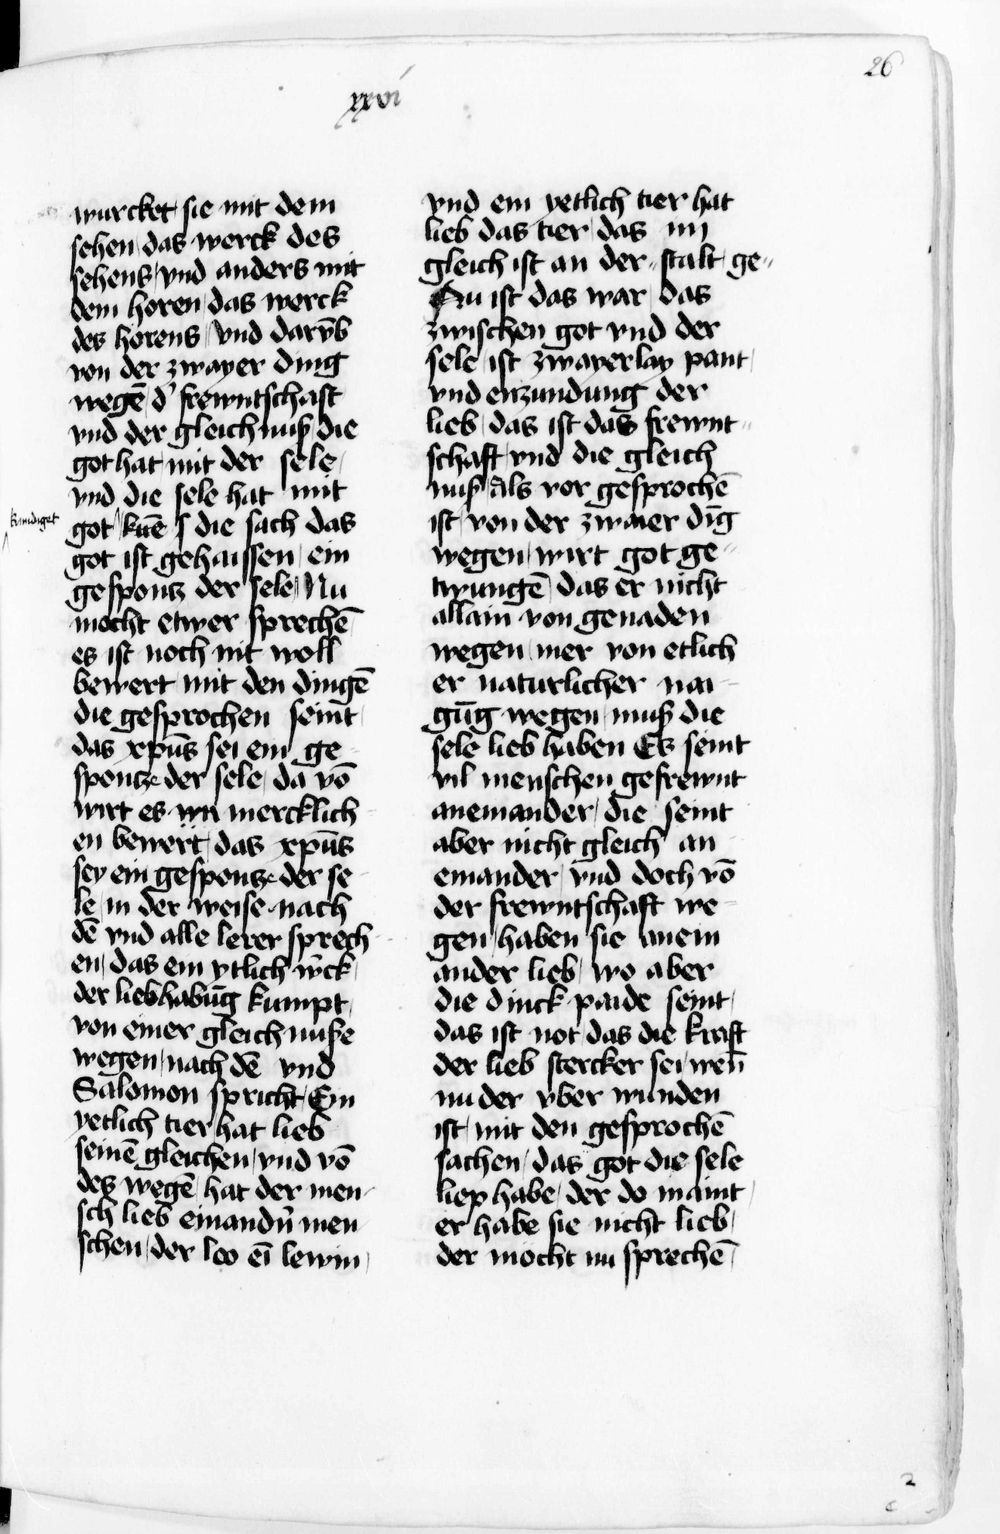 26
xxvi
wurcket sie mit dem
sehen / das werck des
sehens / vnd anders mit
dem horen / das werck
des horens / vnd darv̄b
von der zwayer ding
wegē / d' frewntschaft
vnd der gleichnuß / die
got hat mit der sele /
vnd die sele hat mit
kundiget
got / die sach das
got ist gehaissen / ein
gespontz der sele / Nu
mocht etwer sprechē
es ist noch nit woll
bewert mit den dingē
die gesprochen seint /
das xp̄us sei ein ge-
spontze der sele / da vō
wirt es nu mercklich-
en bewert / das xp̄us
sey ein gespontze der se-
le / in der weise nach
dē vnd alle lerer sprech-
en / das ein ytlich w̄ck /
der liebhabūg kumpt /
von einer gleichnuße
wegen / nach dē vnd
Salomon spricht / Ein
yetlich tier hat lieb
seinē gleichen / vnd vō
des wegē / hat der men-
sch lieb einandn̄ men-
schen / der leo eī lewin /
vnd ein yetlich tier hat
lieb das tier / das im
gleich ist an der stalt / ge-
Nu ist das war / das
zwischen got vnd der
sele / ist zwayerlay pant /
vnd enzundung der
lieb / das ist das frewnt-
schaft / vnd die gleich
nuß / Als vor gesprochē
ist / von der zwaier dīg
wegen / wirt got ge-
twungē / das er nicht
allain von genaden
wegen / mer von etlich
er naturlicher nai-
gūg wegen / muß die
sele lieb haben Es seint
vil menschen gefrewnt
aneinander / die seint
aber nicht gleich an-
einander / vnd doch vō
der frewntschaft we-
gen / haben sie anein
ander lieb / wo aber
die dinck paide seint /
das ist not / das die kraft
der lieb stercker sei / wen̄
nu der vber wunden
ist / mit den gesprochē
sachen / das got die sele
liep habe / der do maint /
er habe sie nicht lieb /
der mocht nu sprechē /
2
c